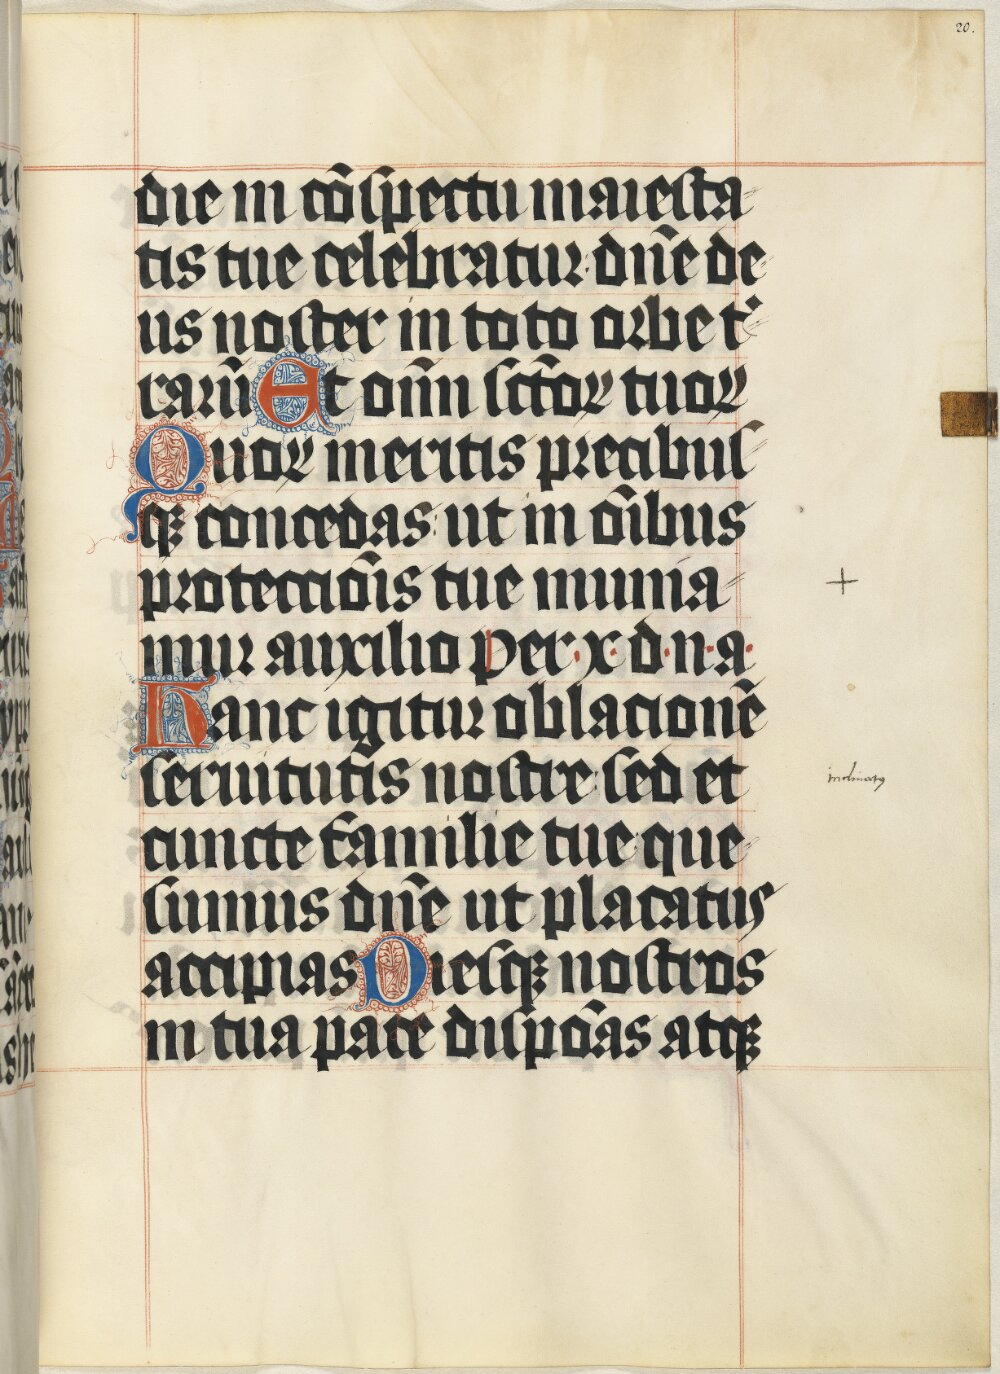 20.
die in cōspectu maiesta-
tis tue celebratur: dn̄e de-
us noster in toto orbe t͛-
rarū Et om̄n sctōꝝ tuoꝝ
Quoꝝ meritis precibus-
qꝫ concedas: ut in oībus
protecciōis tue munia-
mur auxilio Per·x·d·n·a·
Hanc igitur oblacionē
seruitutis nostre: sed et
cuncte familie tue: que-
sumus dn̄e ut placatus
accipias Diesqꝫ nostros
in tua pace dispōas atqꝫ
+
inclinatꝯ